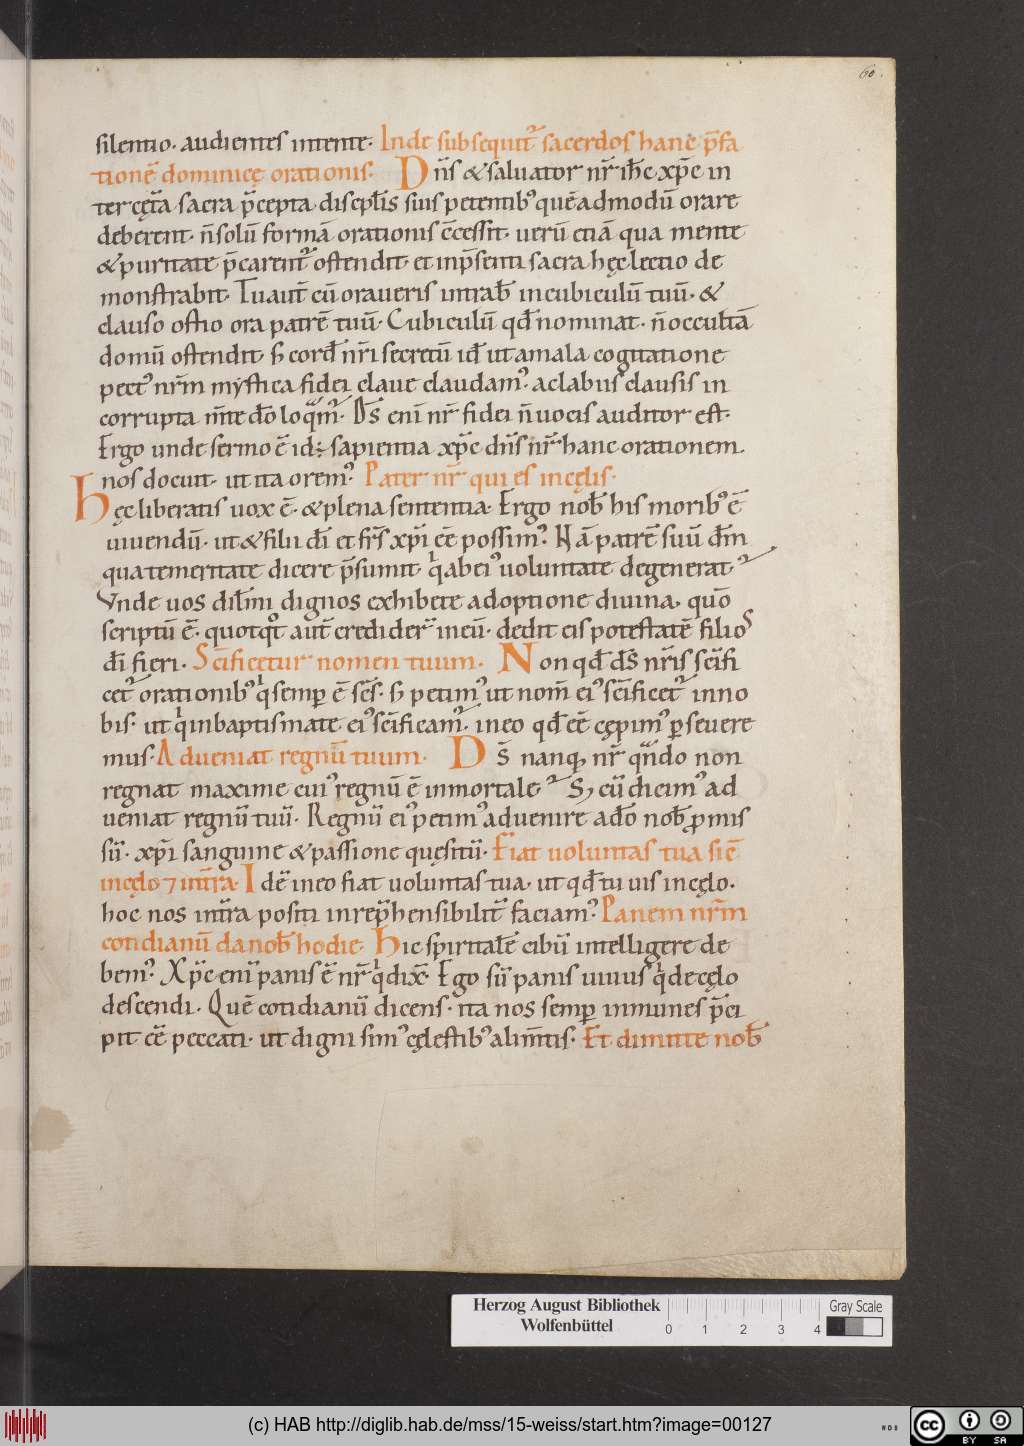 60.
silentio. audientes intente. Inde subsequit᷑ sacerdos hanc p̄fa
tionē dominicę orationis. Dn̄s & saluator nr̄ ih̄e xp̄e in
ter cęt̄a sacra p̄cepta discipl̄is suis petentib; quēadmodū orare
deberent. n̄ solū formā orationis c̄cessit. uerū etiā qua mente
& puritate p̄carent᷑ ostendit. et inp̄senti sacra hęc lectio de
monstrabit. Tu aut̄ cū oraueris intrab̄ in cubiculū tuū. &
clauso ostio ora patrē tuū. Cubiculū qd̄ nominat. n̄ occultā
domū ostendit. s; cord̄ nr̄i secretū id̄ ut a mala cogitatione
pect᷒ nr̄m mystica fidei claue claudam᷒. ac labiis clausis in
corrupta m̄te do̅ loq̄m᷒. Ds̄ eni̅ nr̄ fidei n̄ uocis auditor est.
Ergo unde sermo ē id; sapientia xp̄c dn̄s nr̄ hanc orationem
nos docuit. ut ita orem᷒. Pater nr̄ qui es in cęlis.
Hęc liberatis uox ē. & plena sententia. Ergo nob̄ his morib᷒ ē
uiuendū. ut & filii di̅ et fr̄s xp̄i ēē possim᷒. Nā patrē suū dm̄
qua temeritate dicere p̄sumit. qͥ ab ei᷒ uoluntate degenerat.
Vnde uos dil̄mi dignos exhibete adoptione diuina. quo̅
scriptū ē. quotqͦt aut̄ crediderͭ in eū. dedit eis potestatē filios
di̅ fieri. Sc̄ificetur nomen tuum. Non qd̄ ds̄ nr̄is sc̄ifi
cet᷑ orationib᷒ qͥ semp̲ ē sc̄s. s; petim᷒ ut nom̄ ei᷒ sc̄ificet᷑ in no
bis. ut qͥ in baptismate ei᷒ sc̄ificam᷑. in eo qd̄ ēē cępim᷒ p̲seuere
mus. Adueniat regnū tuum. Ds̄ nanq; nr̄ qͣndo non
regnat maxime cui᷒ regnū ē inmortale. S; cū dicim᷒ ad
ueniat regnū tuū. Regnū ei᷒ petim᷒ aduenire a do̅ nob̄ p̲mis
sū. xp̄i sanguine & passione quęsitū. Fiat uoluntas tua sic̄
in cęlo ⁊ in tr̄ra. Idē in eo fiat uoluntas tua. ut qd̄ tu uis in cęlo.
hoc nos in tr̄ra positi inrep̄hensibilit᷑ faciam᷒. Panem nr̄m
cotidianū da nob̄ hodie. Hic spiritalē cibū intelligere de
bem᷒. Xp̄c enī panis ē nr̄ qͥ dix̄. Ego sū panis uiuus qͥ de cęlo
descendi. Quē cotidianū dicens. ita nos semp̲ inmunes p̄ci
pit ēē peccati. ut digni sim᷒ cęlestib᷒ alim̄tis. Et dimitte nob̄
Herzog August Bibliothek
Wolfenbüttel
0 1 2 3 4
Gray Scale
(c) HAB http://diglib.hab.de/mss/15-weiss/start.htm?image=00127
cc BY SA